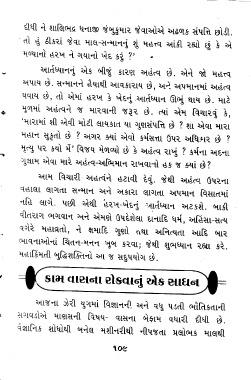 દીધી ને શાલિભદ્ર ધનાજી જંબુકુમાર જેવાઓએ અઢળક સંપત્તિ છોડી.
તો હું ઠીકરાં જેવા માલ-સન્માનનું શું મહત્ત્વ આંકી રહ્યો છું કે એ
મળ્યાનો હરખ ને ગયાનો ખેદ કરું ?'
આર્તધ્યાનનું એક બીજું કારણ અહંત્વ છે. એને જો મહત્ત્વ
અપાય છે. સન્માનને હૈયાથી આવકારાય છે, અને અપમાનમાં અહંત્વ
ઘવાય છે, તો એમાં હરખ કે ખેદનું આર્તધ્યાન ઊભું થાય છે. માટે
મુળમાં અહંત્વને જ મારવાની જરૂર છે. ત્યાં એમ વિચારવું કે,
'મારામાં શી એવી મોટી લાયકાત યા ગુણસંપત્તિ છે ? શા એવા મારા
મહાન સુકૃતો છે ? અગર ક્યાં એવો કર્મસત્તા ઉપર અધિકાર છે ?
મૃત્યુ પર ક્યો મેં વિજય મેળવ્યો છે કે અહંત્વ રાખું ? કર્મના અદના
ગુલામ એવા મારે અહંત્વ-અભિમાન રાખવાનો હક જ ક્યાં છે?
આમ વિચારી અહંત્વને હટાવી દેવું. જેથી અહંત્વ ઉપરના
વહાલા લાગતા સન્માન અને અકારા લાગતા અપમાન વિસાતમાં
નહિ લાગે. પછી એથી હરખ-ખેદનું આર્તધ્યાન અટકશે. બાકી
વીતરાગ ભગવાન અને એમણે ઉપદેશેલા દાનાદિ ધર્મ, અહિંસા-સત્ય
વગેરે મહાવ્રતો, ને ક્ષમાદિ ગુણો તથા અનિત્યતા આદિ બાર
ભાવનાઓનાં ચિંતન-મનન ખૂબ કરવા; જેથી શુભધ્યાન રહ્યા કરે.
મહાકિંમતી બુદ્ધિશક્તિનો આ જ સદુપયોગ છે.
કામ વાસના રોકવાનું એક સાધન
આજના ઝેરી યુગમાં વિજ્ઞાનની અને વધુ પડતી ભૌતિકતાની
સગવડોએ માણસની વિષય- વાસના બેફામ વધારી દીધી છે.
વૈજ્ઞાનિક શોધોથી બનેલ મશીનરીથી નીપજતા પ્રલોભક માલથી
૧૦૯